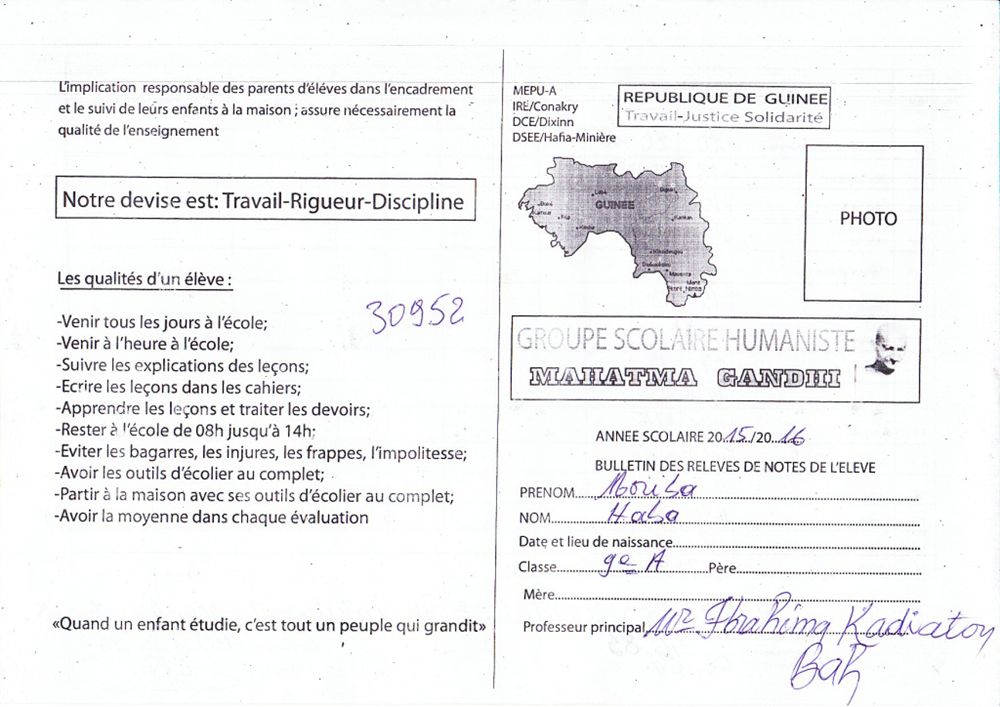 L'implication responsable des parents d'éléves dans l'encadrement
et le suivi de leurs enfants à la maison ; assure nécessairement la
qualité de l'enseignement
Notre devise est: Travail-Rigueur-Discipline
Les qualités d'un élève :
30952
-Venir tous les jours à l'école;
-Venir à l'heure à l'école;
-Suivre les explications des leçons;
-Ecrire les leçons dans les cahiers;
-Apprendre les leçons et traiter les devoirs;
-Rester à l'école de 08h jusqu'à 14h;
-Eviter les bagarres, les injures, les frappes, l'impolitesse;
-Avoir les outils d'écolier au complet;
-Partir à la maison avec ses outils d'écolier au complet;
-Avoir la moyenne dans chaque évaluation
«Quand un enfant étudie, c'est tout un peuple qui grandit»
MEPU-A
IRE/Conakry
DCE/Dixinn
DSEE/Hafia-Minière
REPUBLIQUE DE GUINEE
Travail-Justice Solidarité
GUINEE
PHOTO
GROUPE SCOLAIRE HUMANISTE
MAHATMA GANDHI
ANNEE SCOLAIRE 2015/2016
BULLETIN DES RELEVES DE NOTES DE L'ELEVE
PRENOM Moriba
NOM Haba
Date et lieu de naissance
Classe 9e A Père
Mère
Professeur principal Mr Ibrahima Kadiatou
Bah